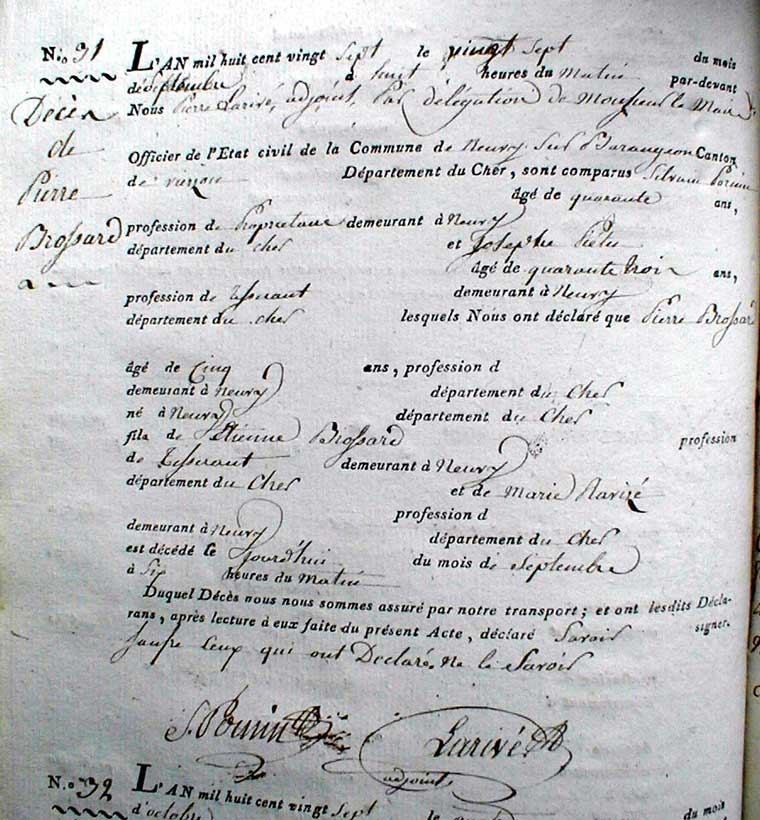 N.º 31
Décès
de
Pierre
Brossard
L'AN mil huit cent vingt sept le vingt sept du mois
de Septembre à huit heures du Matin par-devant
Nous Pierre Larivé, adjoint, Par délégation de Monsieur le Maire
Officier de l'Etat civil de la Commune de Neuvy Sur Barangeon Canton
de vierzon Département du Cher, sont comparus Silvain
âgé de quarante ans,
profession de Propriétaire demeurant à Neuvy
département du Cher et Josephe
âgé de quarante trois ans,
profession de Tisserant demeurant à Neuvy
département du Cher lesquels Nous ont déclaré que Pierre Brossard
âgé de Cinq ans, profession d
demeurant à Neuvy département du Cher
né à Neuvy département du Cher
fils de Etienne Brossard profession
de Tisserant demeurant à Neuvy
département du Cher et de Marie
profession d
demeurant à Neuvy département du Cher
est décédé le jourd'hui du mois de Septembre
à Six heures du Matin
Duquel Décès nous nous sommes assuré par notre transport; et ont lesdits Décla-
rans, après lecture à eux faite du présent Acte, déclaré Savoir signer.
Saufre Ceux qui ont Declaré Ne le Savoir
Larivé
adjoint
N.º 32 L'AN mil huit cent vingt Sept le du mois
d'octobre